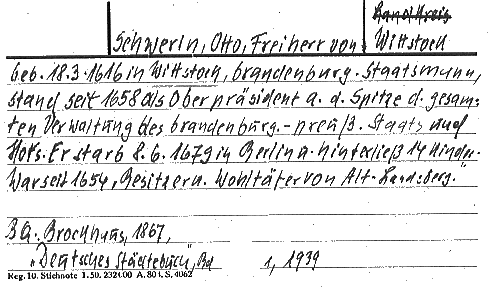 Landkreis
Schwerin, Otto, Freiherr von Wittstock
geb. 18.3.1616 in Wittstock, brandenburg. Staatsmann,
stand seit 1658 als Oberpräsident a. d. Spitze d. gesam-
ten Verwaltung des brandenburg.-preuß. Staats und
Hofs. Er starb 8.6.1679 in Berlin u. hinterließ 14 Kinder.
War seit 1654, Besitzer u. Wohltäter von Alt-Landsberg."
BA: Brockhaus, 1867,
"Deutsches Städtebuch", Bd 1, 1939
Reg. 10. Stichnote 1. 50. 232400 A. 804. S. 4062